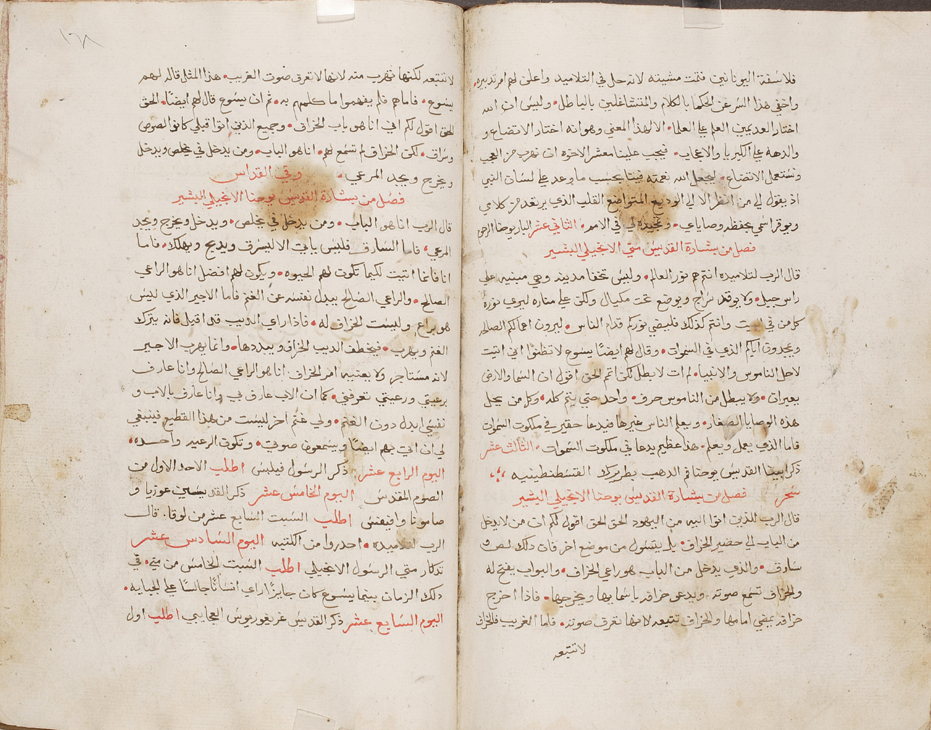 فلاسفة اليونانيين فتمت مشيته لانه حل في التلاميد واعلن لهم امر تدبيره
واخفي هدا السر عن الحكما بالكلام والمتشاغلين بالباطل وليس ان الله
اختار العديمين العلم علي العلماء الا لهذا المعني وهو انه اختار الاتضاع و
والدعة علي الكبريا والاعجاب فيجب علينا معشر الاخوه ان نهرب من العجب
ونستعمل الاتضاع ليجعل الله نعمته فينا بحسب ما وعد علي لسان النبي
اذ يقول لي من انظر الا الي الوديع المتواضع القلب الذي يرتعد من كلامي
ويوقر اسمي بحفظه وصاياي وتمجيده لي في الامر الثاني عشر البار يوحنا الرحوم
فصل من بشارة القديس متي الانجيلي البشير
قال الرب لتلاميذه انتم هم نور العالم وليس تخفا مدينه وهي مبنيه علي
راس جبل ولا يوقد سراج ويوضع تحت مكيال ولكن علي مناره ليري نوره
كل من في البيت وانتم كذلك فليضي نوركم قدام الناس ليرون اعمالكم الصالحه
ويمجدون اباكم الذي في السموات وقال لهم ايضًا يسوع لا تظنوا اني اتيت
لاحل الناموس والانبيا لم ات لابطل لكن اتم الحق اقول ان السما والارض
يعبران ولا يبطل من الناموس حرف واحد حتي يتم كله وكل من يحل
هذه الوصايا الصغار ويعلم الناس غيرها فيدعا حقير في ملكوت السموات
فاما الذي يعمل ويعلم هدا عظيم يدعا في ملكوت السموات الثالث عشر
ذكر ابينا القديس يوحنا فم الدهب بطريرك القسطنطينيه
سحر فصل من بشارة القديس يوحنا الانجيلي البشير
قال الرب للذين اتوا اليه من اليهود الحق الحق اقول لكم ان من لا يدخل
من الباب الي حضير الخراف بل يتسور من موضع اخر فان ذلك لص و
سارق والذي يدخل من الباب هو راعي الخراف والبواب يفتح له
والخراف تسمع صوته ويدعي خرافه باسمايها ويخرجها فاذا اخرج
خرافه يمضي امامها والخراف تتبعه لانها تعرف صوته فاما الغريب فالخراف
لا تتبعه
١٦٨
لا تتبعه لكنها تهرب منه لانها لا تعرف صوت الغريب هذا المثل قاله لهم
يسوع فاما هم فلم يفهموا ما كلمهم به ثم ان يسوع قال لهم ايضًا الحق
الحق اقول لكم اني انا هو باب الخراف وجميع الذين اتوا قبلي كانوا لصوص
وسراق لكن الخراف لم تسمع لهم انا هو الباب ومن يدخل في يخلص ويدخل
ويخرج ويجد المرعي وفي القداس
فصل من بشارة القديس يوحنا الانجيلي البشير
قال الرب انا هو الباب ومن يدخل في يخلص ويدخل ويخرج ويجد
المرعي فاما السارق فليس ياتي الا ليسرق ويدبح ويهلك فاما
انا فانما اتيت لكيما تكون لهم الحيوه ويكون لهم افضل انا هو الراعي
الصالح والراعي الصالح يبدل نفسه عن الغنم فاما الاجير الذي ليس
هو براعٍ وليست الخراف له فاذا راي الديب قد اقبل فانه يترك
الغنم ويهرب فيخطف الديب الخراف ويبددها وانما يهرب الاجير
لانه مستاجر ولا يعنيه امر الخراف انا هو الراعي الصالح وانا عارف
برعيتي ورعيتي تعرفني كما ان الاب عارف بي وانا عارف بالاب و
نفسي ابدل دون الغنم ولي غنم اخر ليست من هذا القطيع فينبغي
لي ان اتي بهم ايضًا ويسمعون صوتي وتكون الرعيه واحده
اليوم الرابع عشر ذكر الرسول فيلبس اطلب الاحد الاول من
الصوم المقدس اليوم الخامس عشر ذكر القديسين غوريا و
صامونا وافيفس اطلب السبت السابع عشر من لوقا قال
الرب لتلاميذه احدروا من الكتبه اليوم السادس عشر
تدكار متي الرسول الانجيلي اطلب السبت الخامس من متي في
دلك الزمان بينما يسوع كان جايزًا راي انسانًا جالسًا علي الجبايه
اليوم السابع عشر ذكر القديس غريغوريوس العجايبي اطلب اول